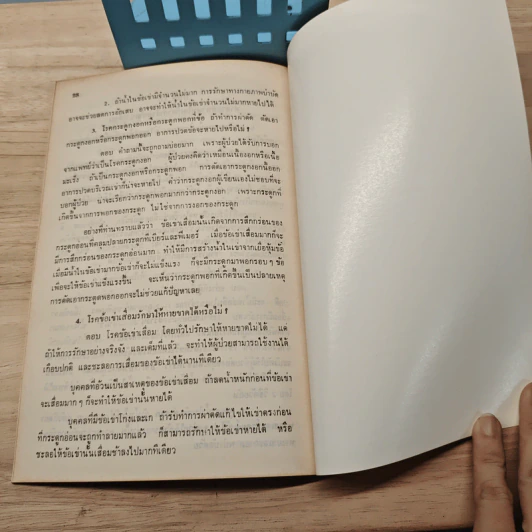 2. ถ้าน้ำในข้อเข่ามีจำนวนไม่มาก การรักษาทางกายภาพบำบัด
อาจจะช่วยลดการอักเสบ อาจจะทำให้น้ำในข้อเข่าจำนวนไม่มากหายไปได้
3. โรคกระดูกงอกหรือกระดูกพอกที่ข้อ ถ้าทำการผ่าตัด ตัดเอา
กระดูกงอกหรือกระดูกพอกออก อาการปวดข้อจะหายไปหรือไม่ ?
ตอบ คำถามนี้จะถูกถามบ่อยมาก เพราะผู้ป่วยได้รับการบอก
จากแพทย์ว่าเป็นโรคกระดูกงอก ผู้ป่วยคงคิดว่าเหมือนเนื้องอกหรือเนื้อ
มะเร็ง ถ้าเป็นกระดูกงอกหรือกระดูกพอก การตัดเอากระดูกงอกนี้ออก
อาการปวดบริเวณเข่าก็น่าจะหายไป คำว่ากระดูกงอกผู้เขียนเองไม่ชอบที่จะ
บอกผู้ป่วย น่าจะเรียกว่ากระดูกพอกมากกว่ากระดูกงอก เพราะกระดูกที่
เกิดขึ้นจากการพอกของกระดูก ไม่ใช่จากการงอกของกระดูก
อย่างที่ท่านทราบแล้วว่า ข้อเข่าเสื่อมนั้นเกิดจากการสึกกร่อนของ
กระดูกอ่อนที่คลุมปลายกระดูกทิเบียและฟีเมอร์ เมื่อข้อเข่าเสื่อมมากก็จะ
มีการสึกกร่อนของกระดูกอ่อนมาก ทำให้มีการสร้างน้ำในเข่าจากเยื่อหุ้มข้อ
เมื่อมีน้ำในข้อเข่ามากข้อเข่าก็จะไม่แข็งแรง ก็จะมีกระดูกมาพอกรอบๆ ข้อ
เพื่อจะให้ข้อเข่าแข็งแรงขึ้น จะเห็นว่ากระดูกพอกที่เกิดขึ้นเป็นปลายเหตุ
การตัดเอากระดูกพอกออกจะไม่ช่วยแก้ปัญหาเลย
4. โรคข้อเข่าเสื่อมรักษาให้หายขาดได้หรือไม่ ?
ตอบ โรคข้อเข่าเสื่อม โดยทั่วไปรักษาให้หายขาดไม่ได้ แต่
ถ้าให้การรักษาอย่างจริงจัง และเต็มที่แล้ว จะทำให้ผู้ป่วยสามารถใช้งานได้
เกือบปกติ และชะลอการเสื่อมของข้อเข่าได้นานทีเดียว
บุคคลที่อ้วนเป็นสาเหตุของข้อเข่าเสื่อม ถ้าลดน้ำหนักก่อนที่ข้อเข่า
จะเสื่อมมาก ๆ ก็จะทำให้ข้อเข่านั้นหายได้
บุคคลที่มีข้อเข่าโก่งและเก ถ้ารับทำการผ่าตัดแก้ไขให้เข่าตรงก่อน
ที่กระดูกอ่อนจะถูกทำลายมากแล้ว ก็สามารถรักษาให้ข้อเข่าหายได้ หรือ
ชะลอให้ข้อเข่านั้นเสื่อมช้าลงไปมากทีเดียว